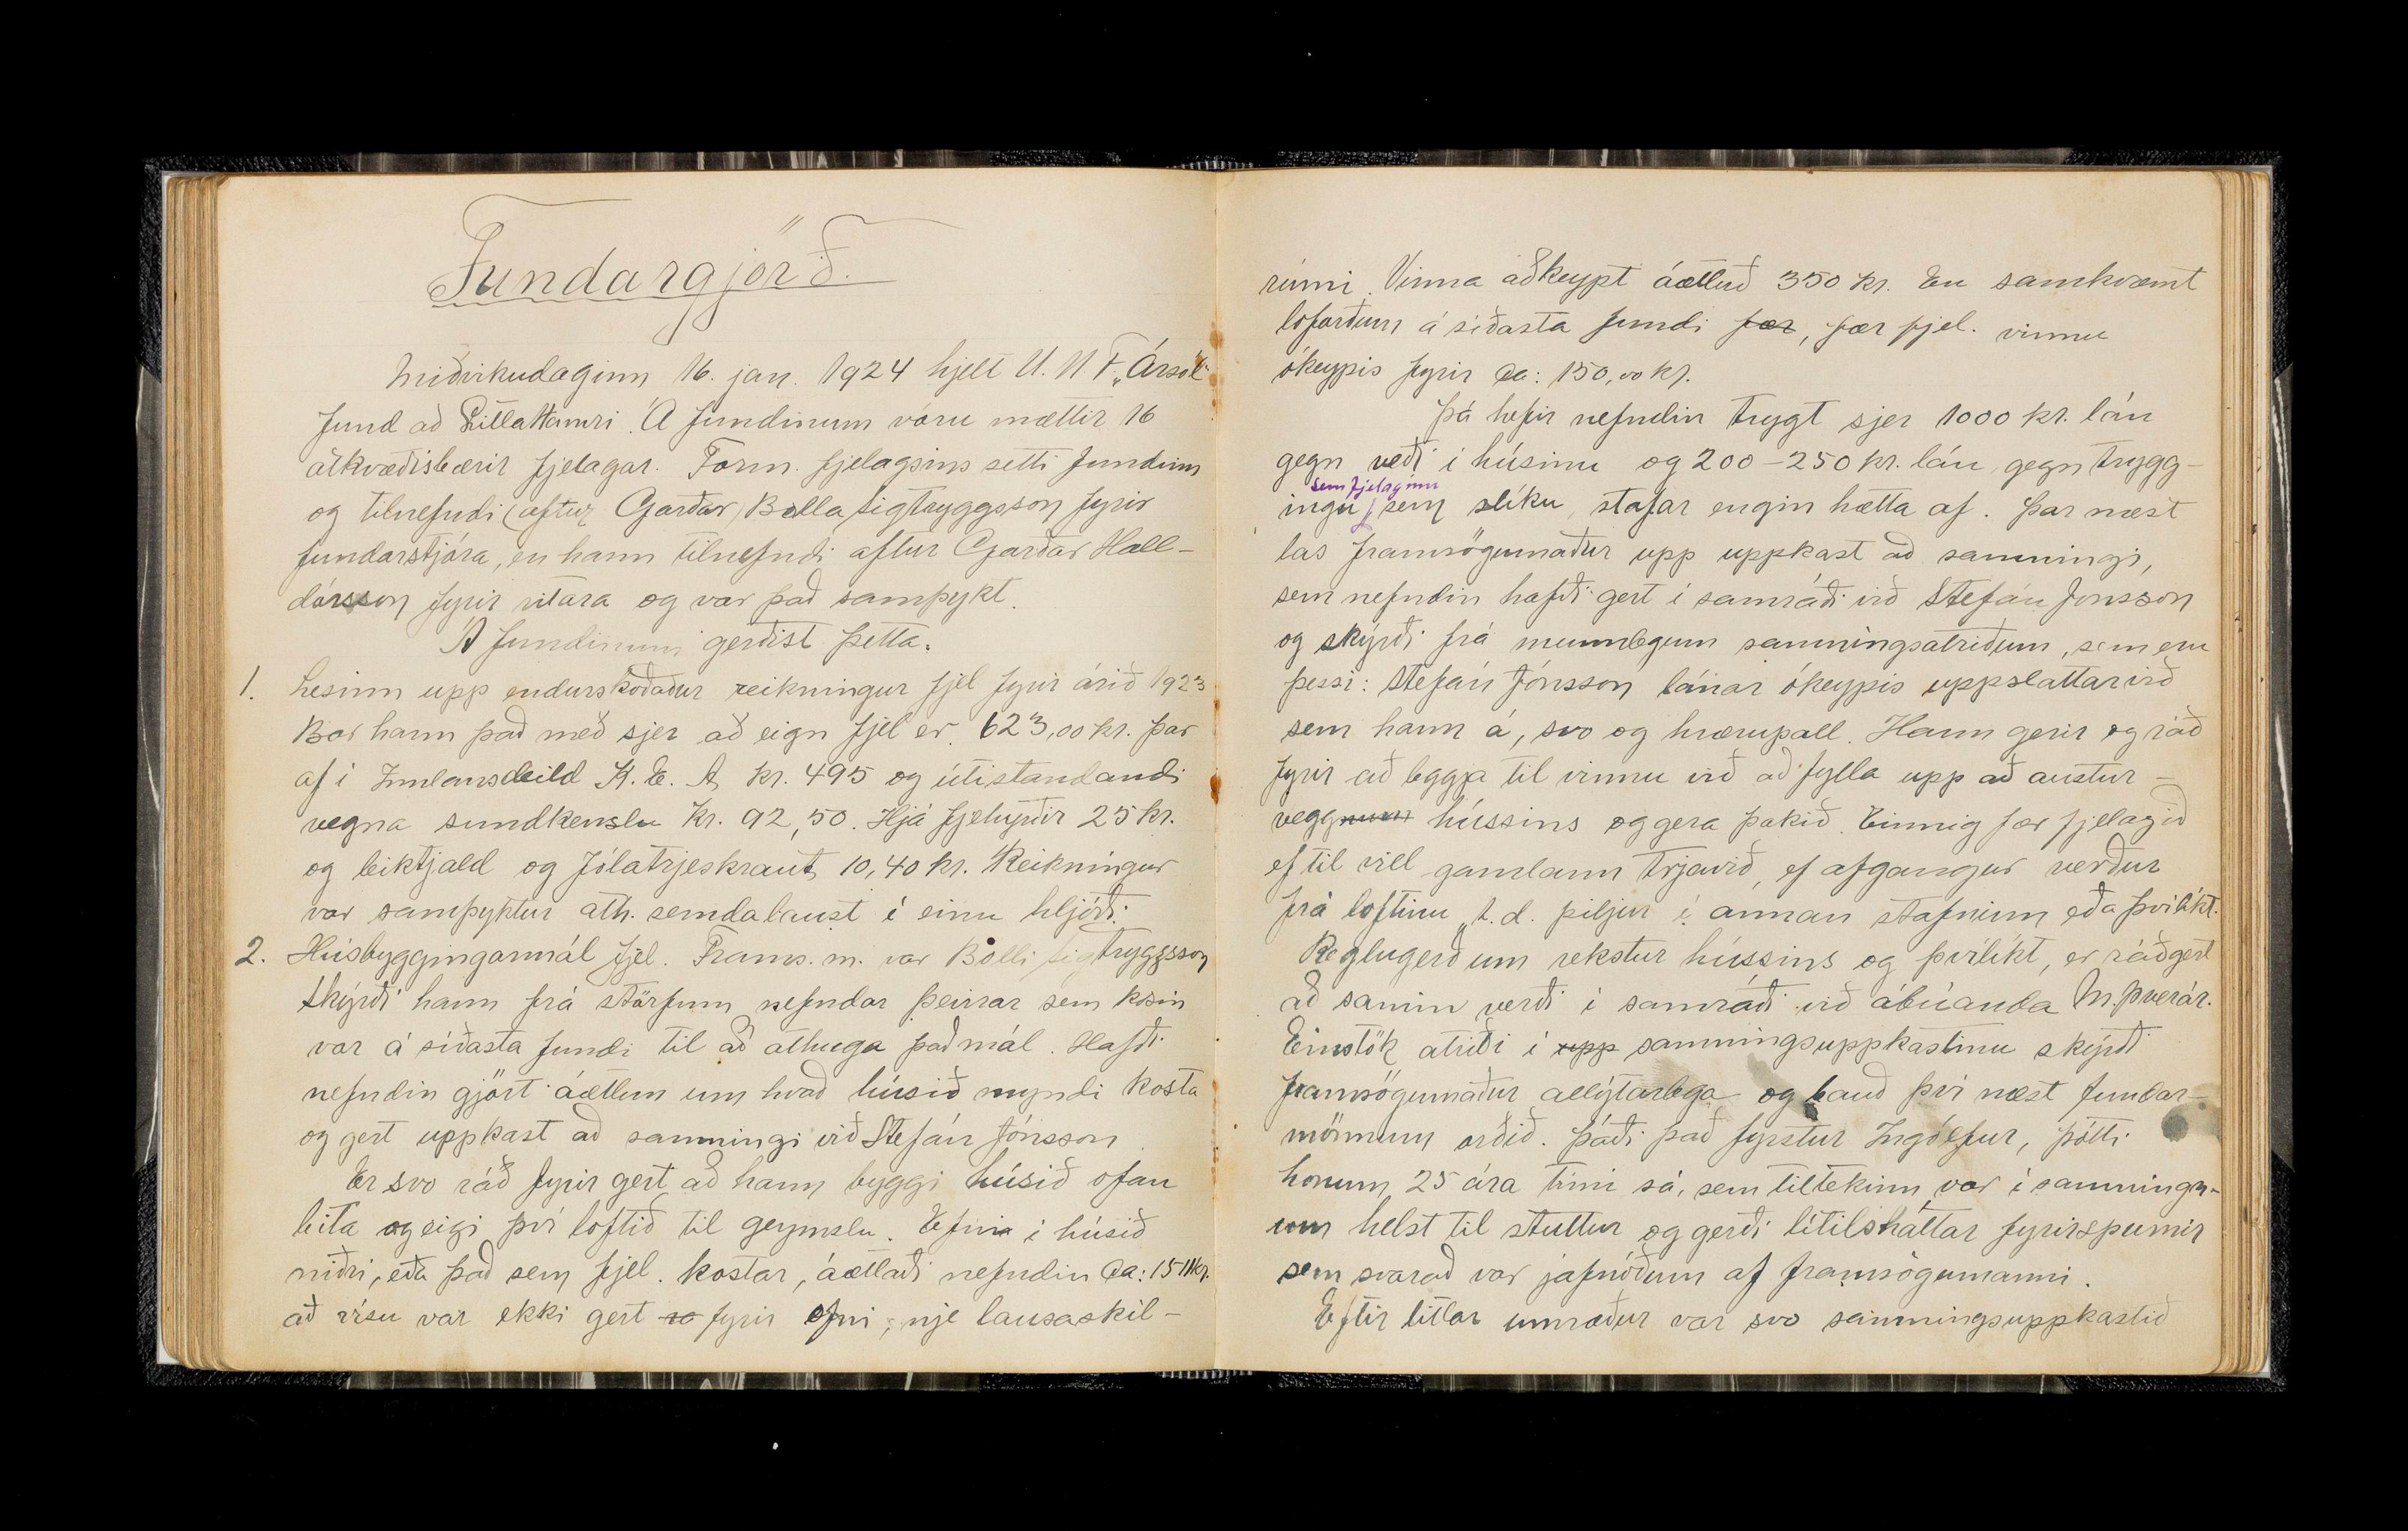 Fundargjörð.
Miðvikudaginn 16. jan. 1924 hjelt U.M.F. „Ársól"
fund að Litla Hamri. Á fundinum vóru mættir 16
atkvæðisbærir fjelagar. Form. fjelagsins setti fundinn
og tilnefndi (eftur Garðar) Bolla Sigtryggsson fyrir
fundarstjóra, en hann tilnefndi aftur Garðar Hall-
dórsson fyrir ritara og var það samþykt.
Á fundinum gerðist þetta.
1. Lesinn upp endurskoðaður reikningur fjel fyrir árið 1923
Bar hann það með sjer að eign fjel er 623,00 kr. þar
af í Innlansdeild K.E.A kr. 495 og útistandandi
vegna sundkenslu kr. 92,50. Hjá fjehyrðir 25 kr.
og leiktjald og Jólatrjeskraut 10,40 kr. Reikningur
var samþyktur ath. semdalaust í einu hljóði.
2. Húsbyggingarmál fjel. Frams. m. var Bolli Sigtryggsson
skýrði hann frá störfum nefndar þeirrar sem kosin
var á síðasta fundi til að athuga það mál. Hafði
nefndin gjört áætlun um hvað húsið myndi kosta
og gert uppkast að samningi við Stefán Jónsson
Er svo ráð fyrir gert að hann byggi húsið ofan
bita og eigi því loftið til geymslu. Efni í húsið
niðri, eða það sem fjel. kostar, áætlaði nefndin ca: 1511 kr.
að vísu var ekki gert ra fyrir ofni, nje lausaskil-
rúmi. Vinna aðkeypt áætluð 350 kr. En samkvæmt
loforðum á síðasta fundi fær, fær fjel. vinnu
ókeypis fyrir ca: 150,00 kr.
Þá hefir nefndin trygt sjer 1000 kr. lán
gegn veði í húsinu og 200-250 kr. lán gegn trygg-
sem fjelaginu
ingu, sem slíku, stafar engin hætta af. Þar næst
las framsögumaður upp uppkast að samningi,
sem nefndin hafði gert í samráði við Stefán Jonsson
og skýrði frá munnlegum samningsatriðum, sem eru
þessi: Stefán Jónsson lánar ókeypis uppslattarvið
sem hann á, svo og hrærupall. Hann gerir og ráð
fyrir að leggja til vinnu við að fylla upp að austur-
veggnum hússins og gera þakið. Einnig fær fjelagið
ef til vill gamlann trjavið, ef afgangur verður
frá loftinu, t.d. þiljur í annan stafninn eða þvílíkt.
Reglugerð um rekstur hússins og þvílíkt, er ráðgert
að samin verði í samráði við ábúanda M. Þverár.
Einstök atriði í upp samningsuppkastinu skýrði
framsögumaður allýtarlega og bauð því næst fundar-
mönnum orðið. Þáði það fyrstur Ingólfur, þótti
honum 25 ára tími sá, sem tiltekinn var í samningn-
um helst til stuttur og gerði lítilsháttar fyrirspurnir
sem svarað var jafnóðum af framsögumanni.
Eftir litlar umræður var svo samningsuppkastið